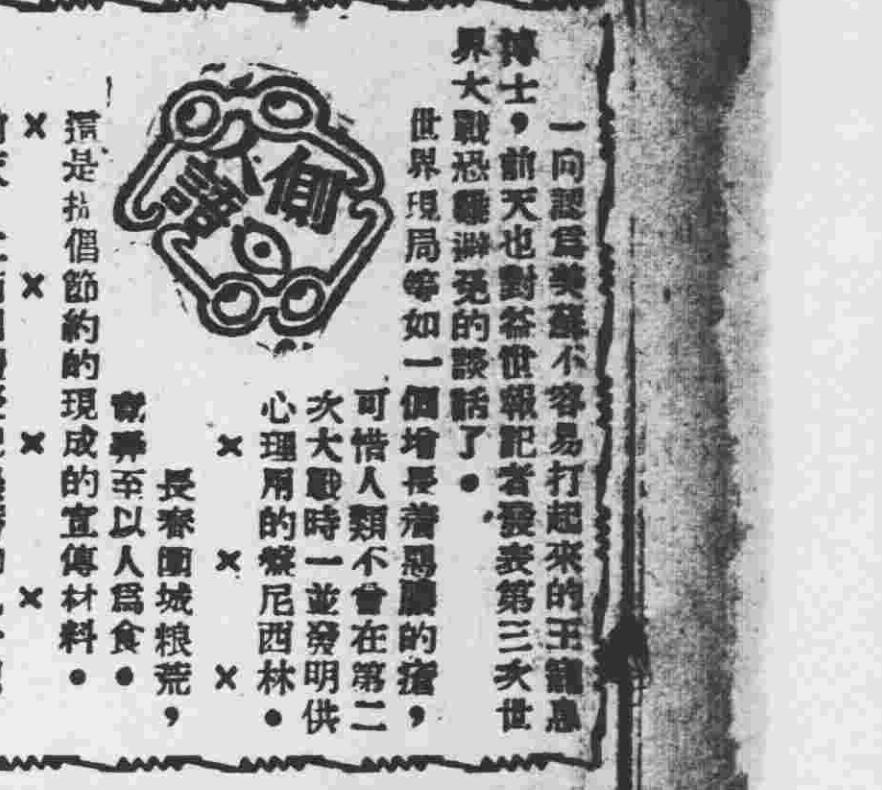 一向認爲美蘇不容易打起來的王寵惠
博士，前天也對荅世報記者發表第三次世
界大戰恐難避免的談話了。
世界現局等如一個增長着惡膿的瘡，
可惜人類不曾在第二
次大戰時一並發明供
心理用的盤尼西林。
側
人語
×　×　×
長春圍城粮荒，
竟弄至以人爲食。
這是提倡節約的現成的宣傳材料。
×　×　×　×